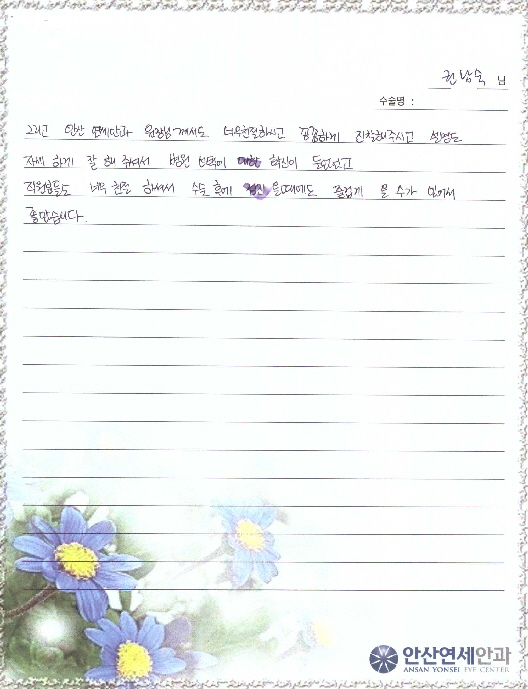 권남숙 님
수술명 :
그리고 안산 연세안과 원장님께서도 너무친절하시고 꼼꼼하게 진찰해주시고 설명도
자세 하게 잘 해 주셔서 병원 선택에 대한 확신이 들었었고
직원분들도 너무 친절 하셔서 수술 후에 검진 올때에도 즐겁게 올 수가 있어서
좋았습니다.
안산연세안과
ANSAN YONSEI EYE CENTER